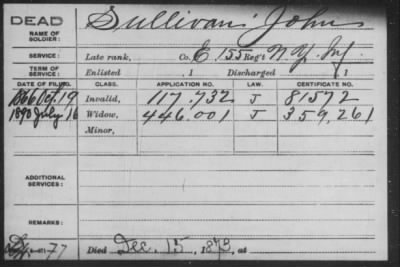 DEAD Sullivan John
NAME OF SOLDIER:
SERVICE: Late rank, Co. E 155 Reg't N.Y. Inf
TERM OF SERVICE: Enlisted , 1 Discharged , 1
DATE OF FILING. CLASS. APPLICATION NO. LAW. CERTIFICATE NO.
1866 Oct. 19 Invalid, 117.732 J 81572
1890 July 16 Widow, 446.001 J 359,261
Minor,
ADDITIONAL SERVICES:
REMARKS:
77 Died Dec. 15, 1873, at